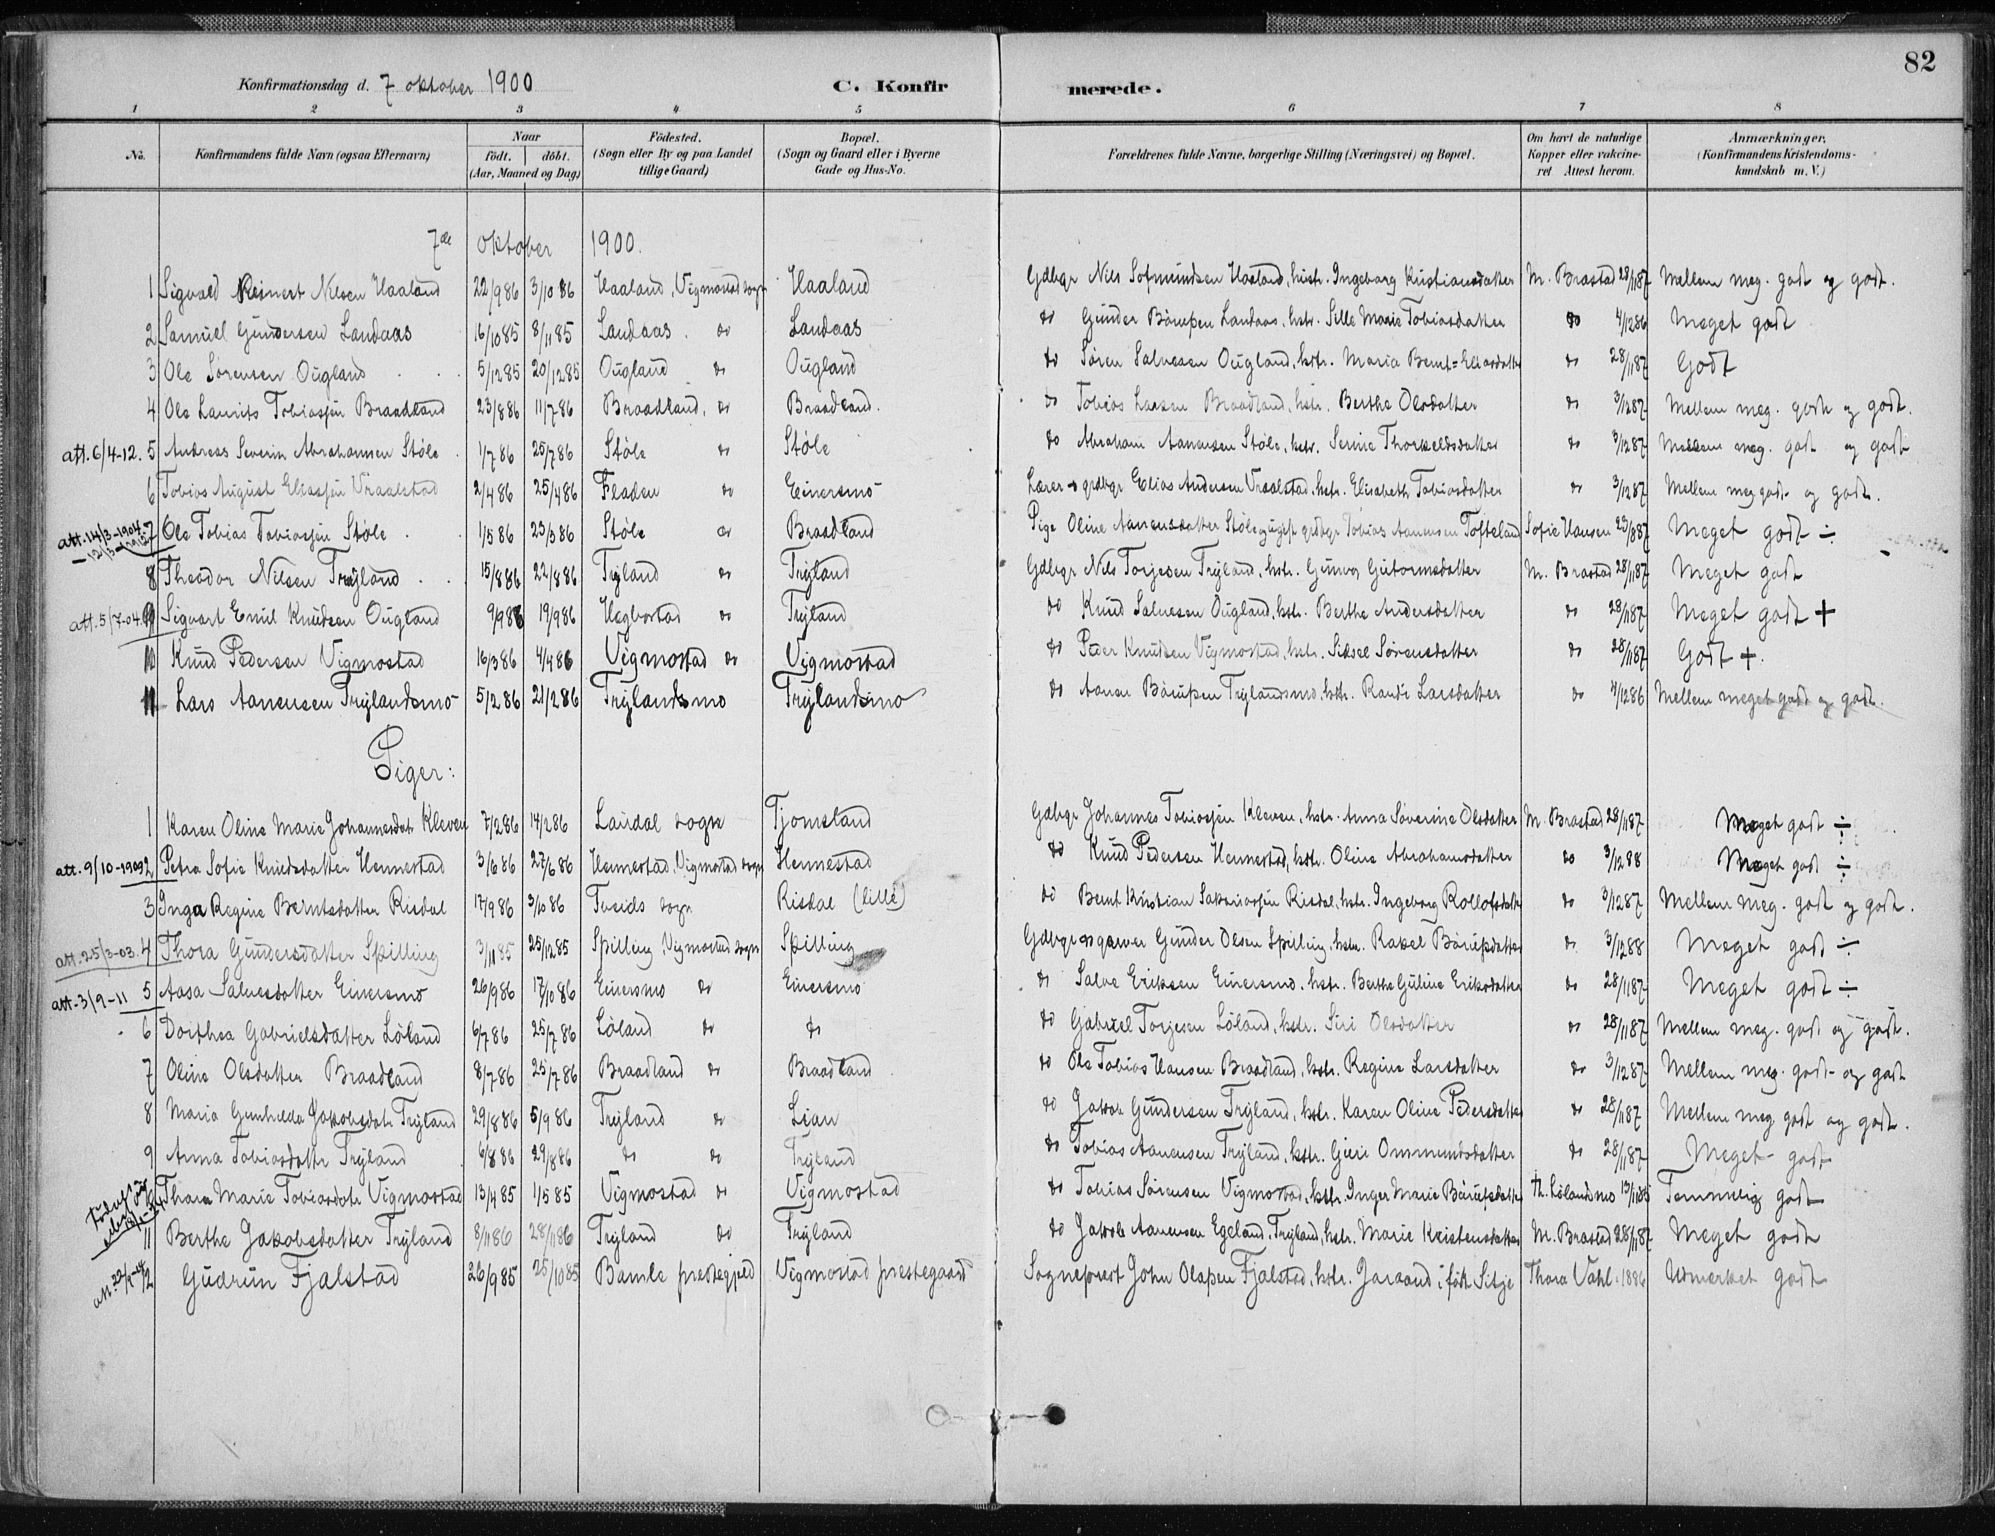 82
Konfirmationsdag d. 7 oktober 1900 C. Konfirmerede.
1 2 3 4 5 6 7 8
No. Konfirmandens fulde Navn (ogsaa Efternavn) Naar födt. döbt. (Aar, Maaned og Dag) Födested. (Sogn eller By og paa Landet tillige Gaard) Bopæl. (Sogn og Gaard eller i Byerne Gade og Hus-No. Forældrenes fulde Navne, borgerlige Stilling (Næringsvei) og Bopæl. Om havt de naturlige Kopper eller vakcineret Attest herom. Anmærkninger, (Konfirmandens Kristendomskundskab m. V.)
7de oktober 1900.
1 Sigvald Reinert Nilsen Haaland 22/9 86 3/10 86 Haaland, Vigmostad sogn Haaland Gdbgr Nils Sofmundsen Haaland, hustr. Ingeborg Kristiansdatter M. Brastad 28/11 87 Mellem meg. godt og godt.
2 Samuel Gundersen Landaas 16/10 85 8/11 85 Landaas. do Landaas do Gunder Bårupsen Landaas, hstr. Sille Marie Tobiasdatter do 4/12 86 Meget godt
3 Ole Sörensen Ougland 5/12 85 20/12 85 Ougland do Ougland do Sören Salvesen Ougland, hstr. Maria Bernt=Eliasdatter do 28/11 87 Godt
4 Ole Laurits Tobiassen Braadland 23/8 86 11/7 86 Braadland, do Braadland. do Tobias Larsen Braadland, hstr. Berthe Olsdatter do 3/12 87 Mellem meg. godt og godt.
att. 6/4-12. 5 Andreas Severin Abrahamsen Støle 1/7 86 25/7 86 Støle do Støle do Abraham Aanensen Støle, hstr. Serine Thorkeldsdatter do 3/12 87 Mellem meg. godt og godt
6 Tobias August Eliassen Vraalstad 2/4 86 25/4 86 Fladen do Einersmo Lærer og grdbgr Elias Andersen Vraalstad, hstr. Elisabeth Tobiasdatter do 3/12 87 Mellem meg godt og godt.
att. 14/3-1904. 7 Ole Tobias Tobiassen Støle 1/5 86 23/3 86 Støle do Braadland Pige Oline Aanensdatter Støle og ugift grdbgr Tobias Aanensen Tofteland Sofie Hansen 23/8 87 Meget godt ÷
8 Theodor Nilsen Tryland 15/8 86 22/8 86 Tryland do Tryland Gdbgr Nils Torjesen Tryland, hstr. Gunvor Gutormsdatter M. Brastad 28/11 87 Meget godt
att. 5/7-04. 9 Sigvart Emil Knudsen Ougland 9/9 86 19/9 86 Hegbostad do Tryland do Knud Salvesen Ougland, hstr. Berthe Andersdatter do 28/11 87 Meget godt +
10 Knud Pedersen Vigmostad 16/3 86 4/4 86 Vigmostad do Vigmostad do Peder Knudsen Vigmostad, hstr. Sissel Sörensdatter do 28/11 87 Godt +.
11 Lars Aanensen Trylandsmo 5/2 86 21/2 86 Trylandsmo Trylandsmo do Aanen Bårupsen Trylandsmo, hstr. Randi Larsdatter do 4/12 86 Mellem meget godt og godt.
Piger:
1 Karen Oline Marie Johannesdatr Kleven 7/2 86 14/2 86 Laudal sogn Tjomsland Gdbgr Johannes Tobiassen Kleven, hstr. Anna Severine Olsdatter M. Brastad 28/11 87 Meget godt ÷
att. 9/10-1909 2 Petra Sofie Knudsdatter Hennestad 3/6 86 27/6 86 Hennestad, Vigmostad sogn Hennestad do Knud Pedersen Hennestad, hstr. Oline Abrahamsdatter do 3/12 88 Meget godt ÷
3 Inga Regine Berntsdatter Risdal 17/9 86 3/10 86 Finsdal sogn Risdal (lille) do Bernt Kristian Sakariassen Risdal, hstr. Ingeborg Rollofsdatr do 3/12 87 Mellem meg. godt og godt.
att. 25/3-03. 4 Thora Gundersdatter Spilling 3/11 85 25/12 85 Spilling, Vigmostad sogn Spilling Gdbgr og garver Gunder Olsen Spilling, hstr. Rakel Bårupsdatter do 3/12 88 Meget godt ÷
att. 3/9-11 5 Aasa Salvesdatter Einersmo 26/9 86 17/10 86 Einersmo do Einersmo do Salve Eriksen Einersmo, hstr. Berthe Guline Eriksdatter do 28/11 87 Meget godt ÷
6 Dorthea Gabrielsdatter Löland 6/7 86 25/7 86 Löland do do do Gabriel Torjesen Löland, hstr. Siri Olsdatter do 28/11 87 Mellem meg. godt og godt.
7 Oline Olsdatter Braadland 8/7 86 25/7 86 Braadland do Braadland do Ole Tobias Hansen Braadland, hstr. Regine Larsdatter do 3/12 87 Mellem meg. godt og godt
8 Maria Gunhilda Jakobsdatr Tryland 29/8 86 5/9 86 Tryland do Lian do Jakob Gundersen Tryland, hstr. Karen Oline Pedersdatter do 28/11 87 Mellem meg godt og godt.
9 Anna Tobiasdattr Tryland 6/8 86 29/8 86 do do Tryland do Tobias Aanensen Tryland, hstr. Guri Ommundsdatter do 28/11 87 Meget godt
10 Thora Marie Tobiasdotr Vigmostad 13/4 85 1/5 85 Vigmostad do Vigmostad do Tobias Sörensen Vigmostad, hstr. Inger Marie Bårupsdatter Th. Lölandsmo 13/11 85 Temmelig godt
11 Berthe Jakobsdatter Tryland 8/11 86 28/11 86 Tryland do Tryland do Jakob Aanensen Egeland, Tryland, hstr. Marie Kristensdatter M. Brastad 28/11 87 Meget godt
12 Gudrun Fjalstad 26/9 85 25/10 85 Bamle prestegjeld Vigmostad prestegaard Sogneprest John Olafsen Fjalstad, hstr. Jaraand född Sitje Thora Vahl 1886 Udmerket godt